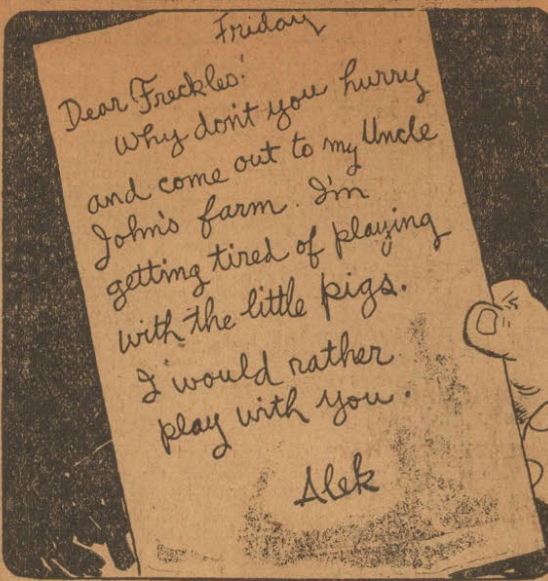 Friday
Dear Freckles!
Why don't you hurry
and come out to my Uncle
John's farm. I'm
getting tired of playing
with the little pigs.
I would rather
play with you.
Alek